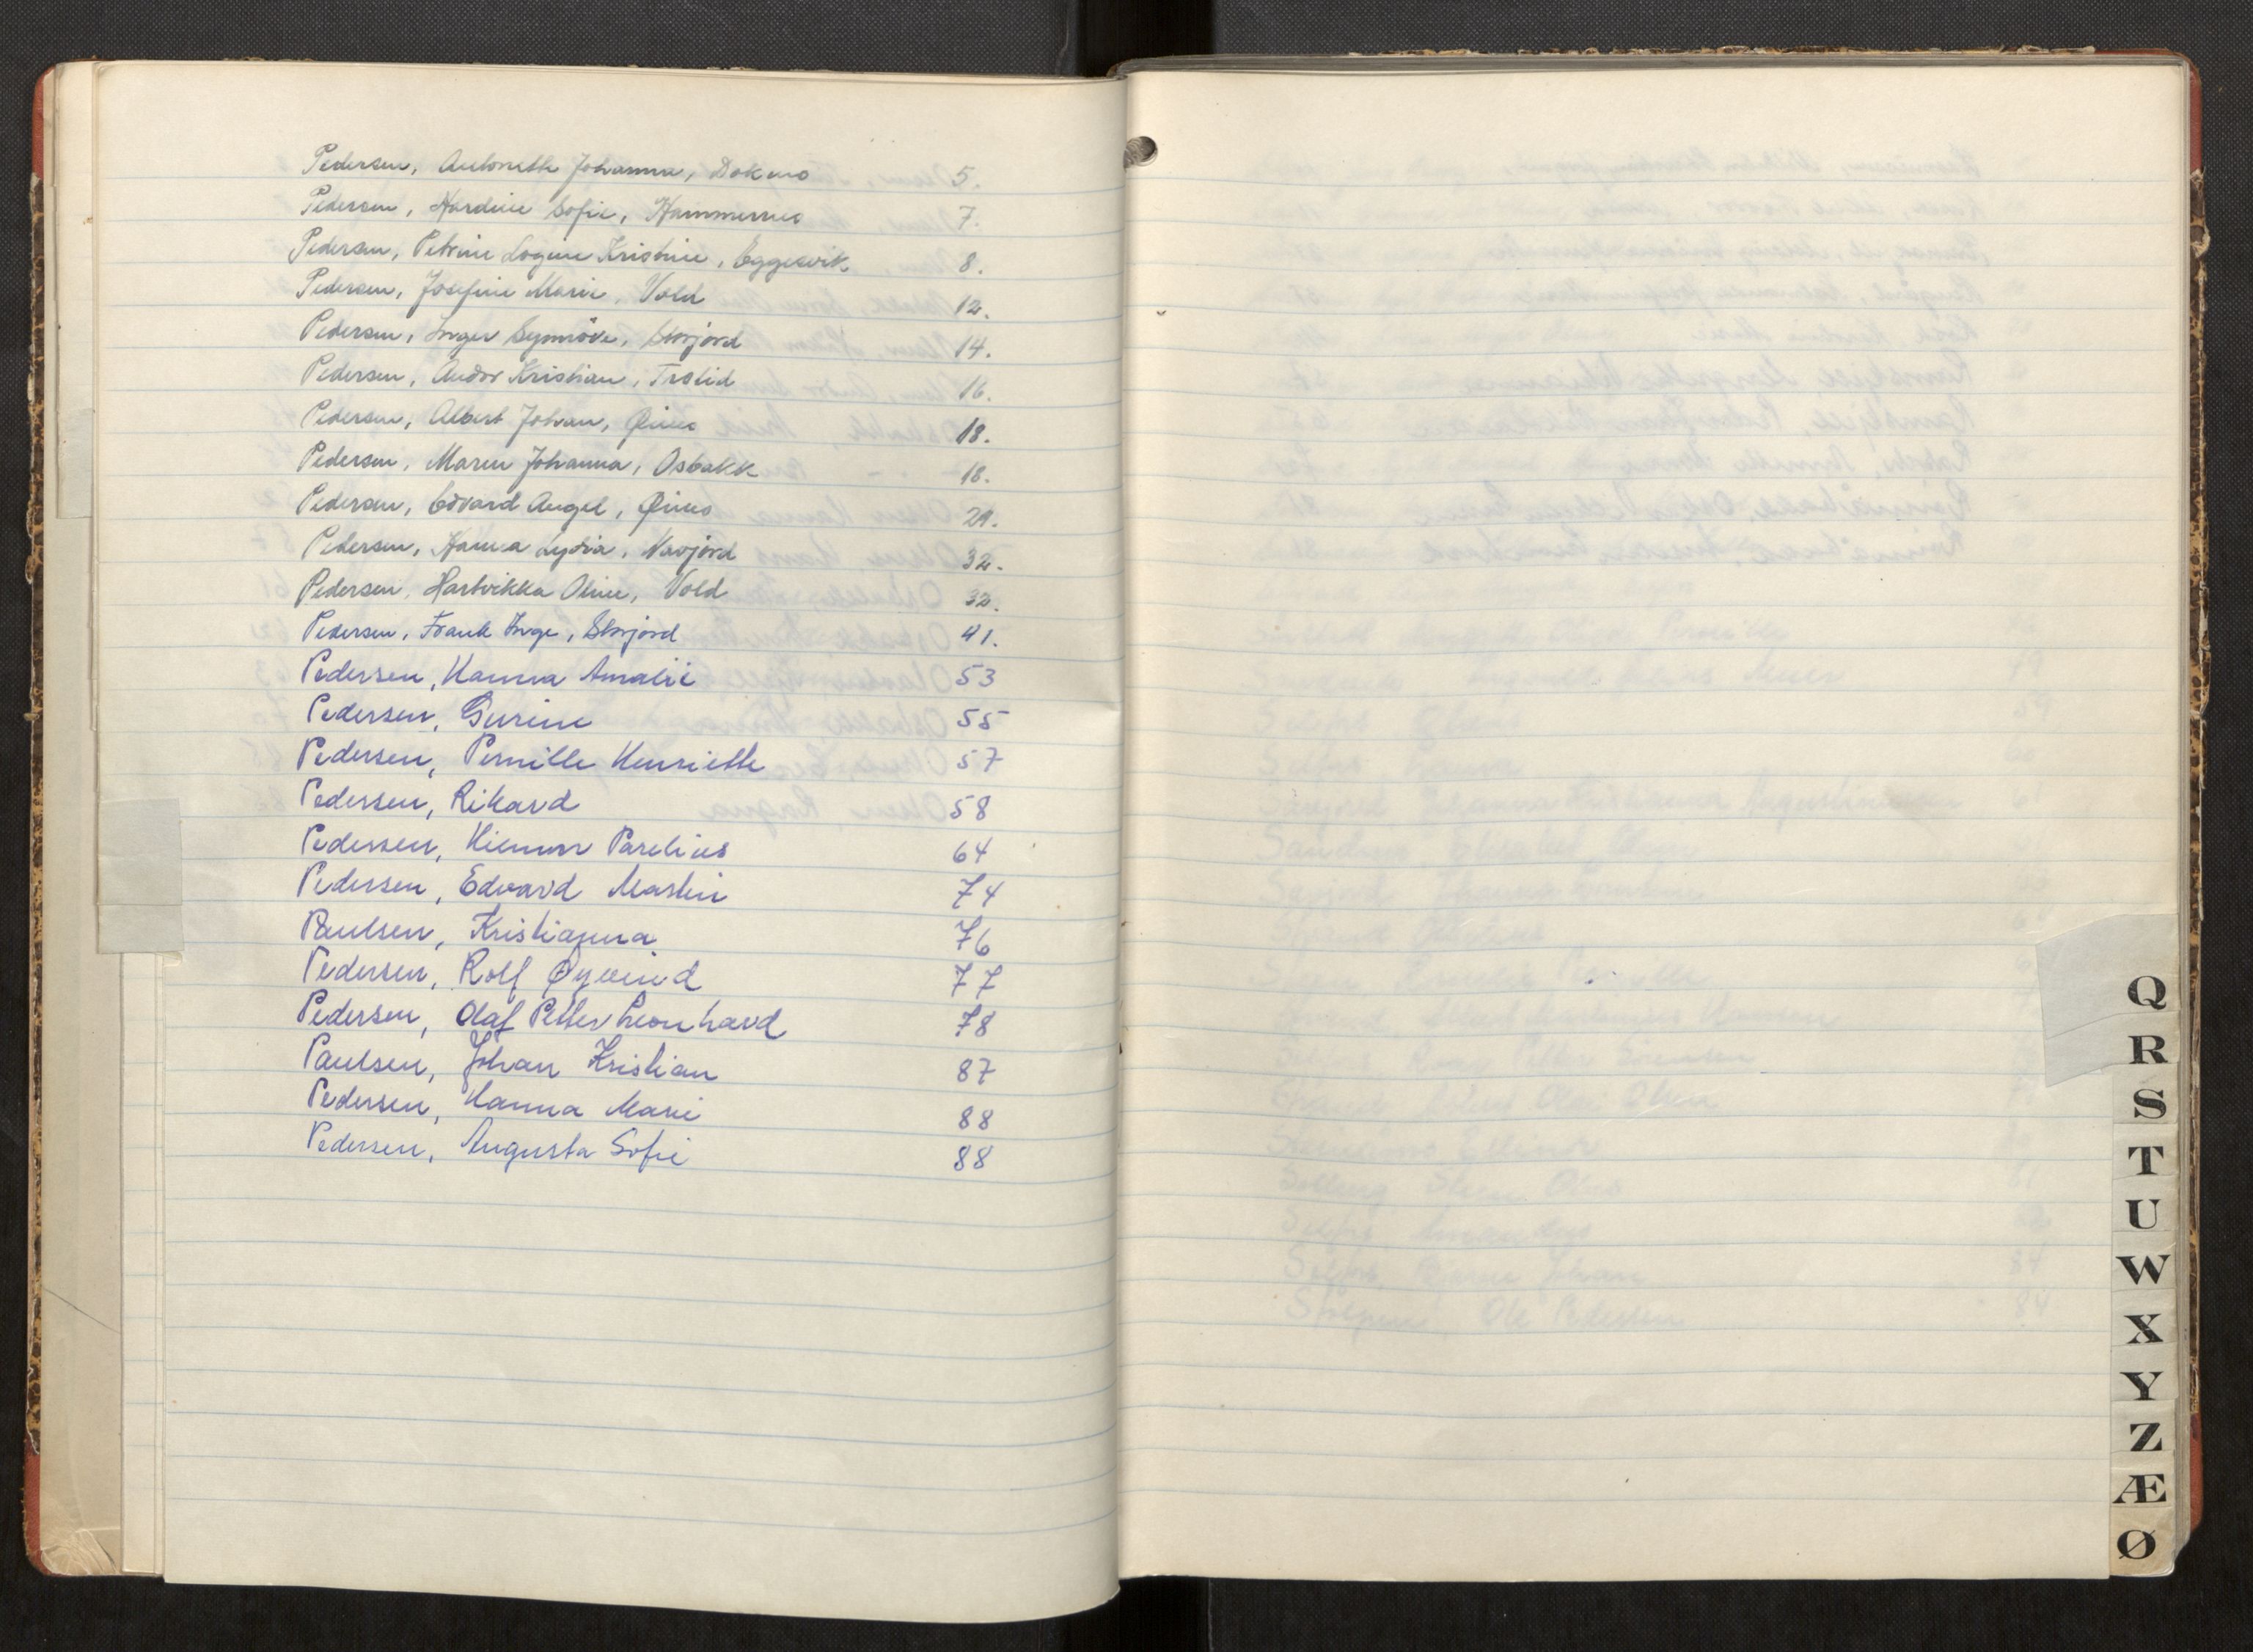 Pedersen, Antonette Johanna, Dokmo 5.
Pedersen, Hardine Sofie, Hammernes 7.
Pedersen, Petrine Logine Kristine, Eggesvik 8.
Pedersen, Josefine Marie, Vold 12.
Pedersen, Inger Synnöve, Storjord 14.
Pedersen, Andor Kristian, Trolid 16.
Pedersen, Albert Johan, Øines 18.
Pedersen, Maren Johanna, Osbakk 18.
Pedersen, Edvard Angel, Øines 29.
Pedersen, Hanna Lydia, Navjord 32.
Pedersen, Hartvikka Oline, Vold 32.
Pedersen, Frank Inge, Storjord 41.
Pedersen, Hanna Amalie 53
Pedersen, Gurine 55
Pedersen, Pernille Henriette 57
Pedersen, Rikard 58
Pedersen, Hilmar Parelius 64
Pedersen, Edvard Martin 74
Paulsen, Kristianna 76
Pedersen, Rolf Øyvind 77
Pedersen, Olaf Petter Leonhard 78
Paulsen, Johan Kristian 87
Pedersen, Hanna Marie 88
Pedersen, Augusta Sofie 88
Q
R
S
T
U
W
X
Y
Z
Æ
Ø